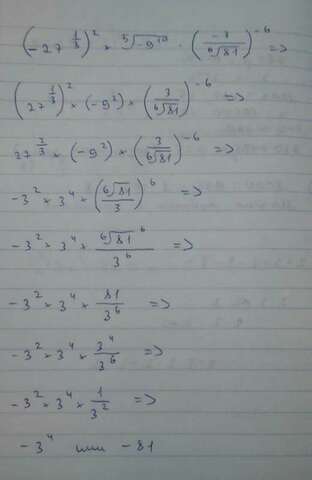 (-27^{\frac{1}{3}})^2 × \sqrt[5]{-9^{10}} · (\frac{-3}{\sqrt[6]{81}})^{-6} =>
(27^{\frac{1}{3}})^2 × (-9^2) × (\frac{3}{\sqrt[6]{81}})^{-6} =>
27^{\frac{2}{3}} × (-9^2) × (\frac{3}{\sqrt[6]{81}})^{-6} =>
-3^2 × 3^4 × (\frac{\sqrt[6]{81}}{3})^6 =>
-3^2 × 3^4 × \frac{\sqrt[6]{81}^6}{3^6} =>
-3^2 × 3^4 × \frac{81}{3^6} =>
-3^2 × 3^4 × \frac{3^4}{3^6} =>
-3^2 × 3^4 × \frac{1}{3^2} =>
-3^4 или -81